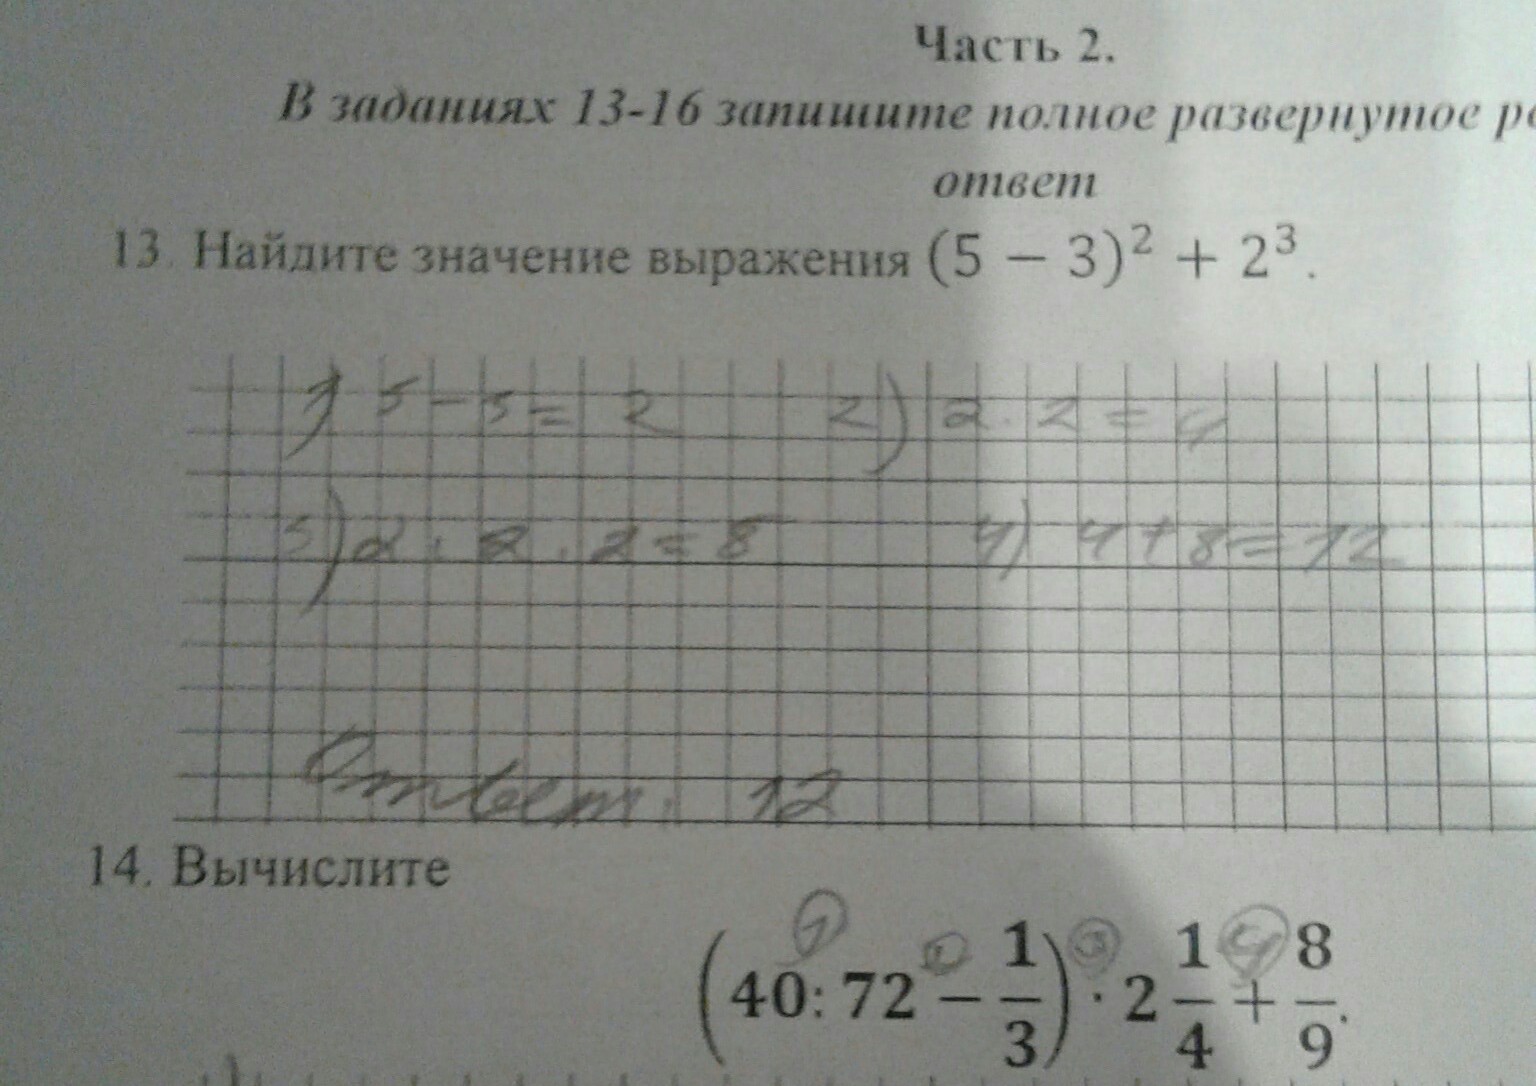 Часть 2.
В заданиях 13-16 запишите полное развернутое
ответ
13. Найдите значение выражения (5 − 3)² + 2³.
1) 5 - 3 = 2 2) 2 · 2 = 4
3) 2 · 2 · 2 = 8 4) 4 + 8 = 12
Ответ: 12
14. Вычислите
1 2 3 4
(40: 72 − 1/3) · 2 1/4 + 8/9.